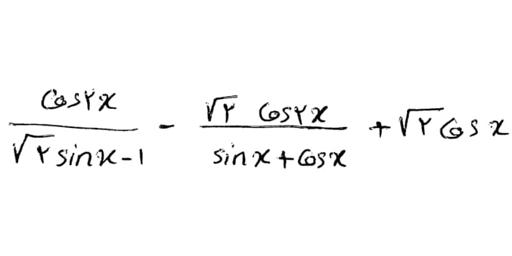 cos۲x / (√۲ sinx-1) - √۲ cos۲x / (sinx+cosx) + √۲ cosx